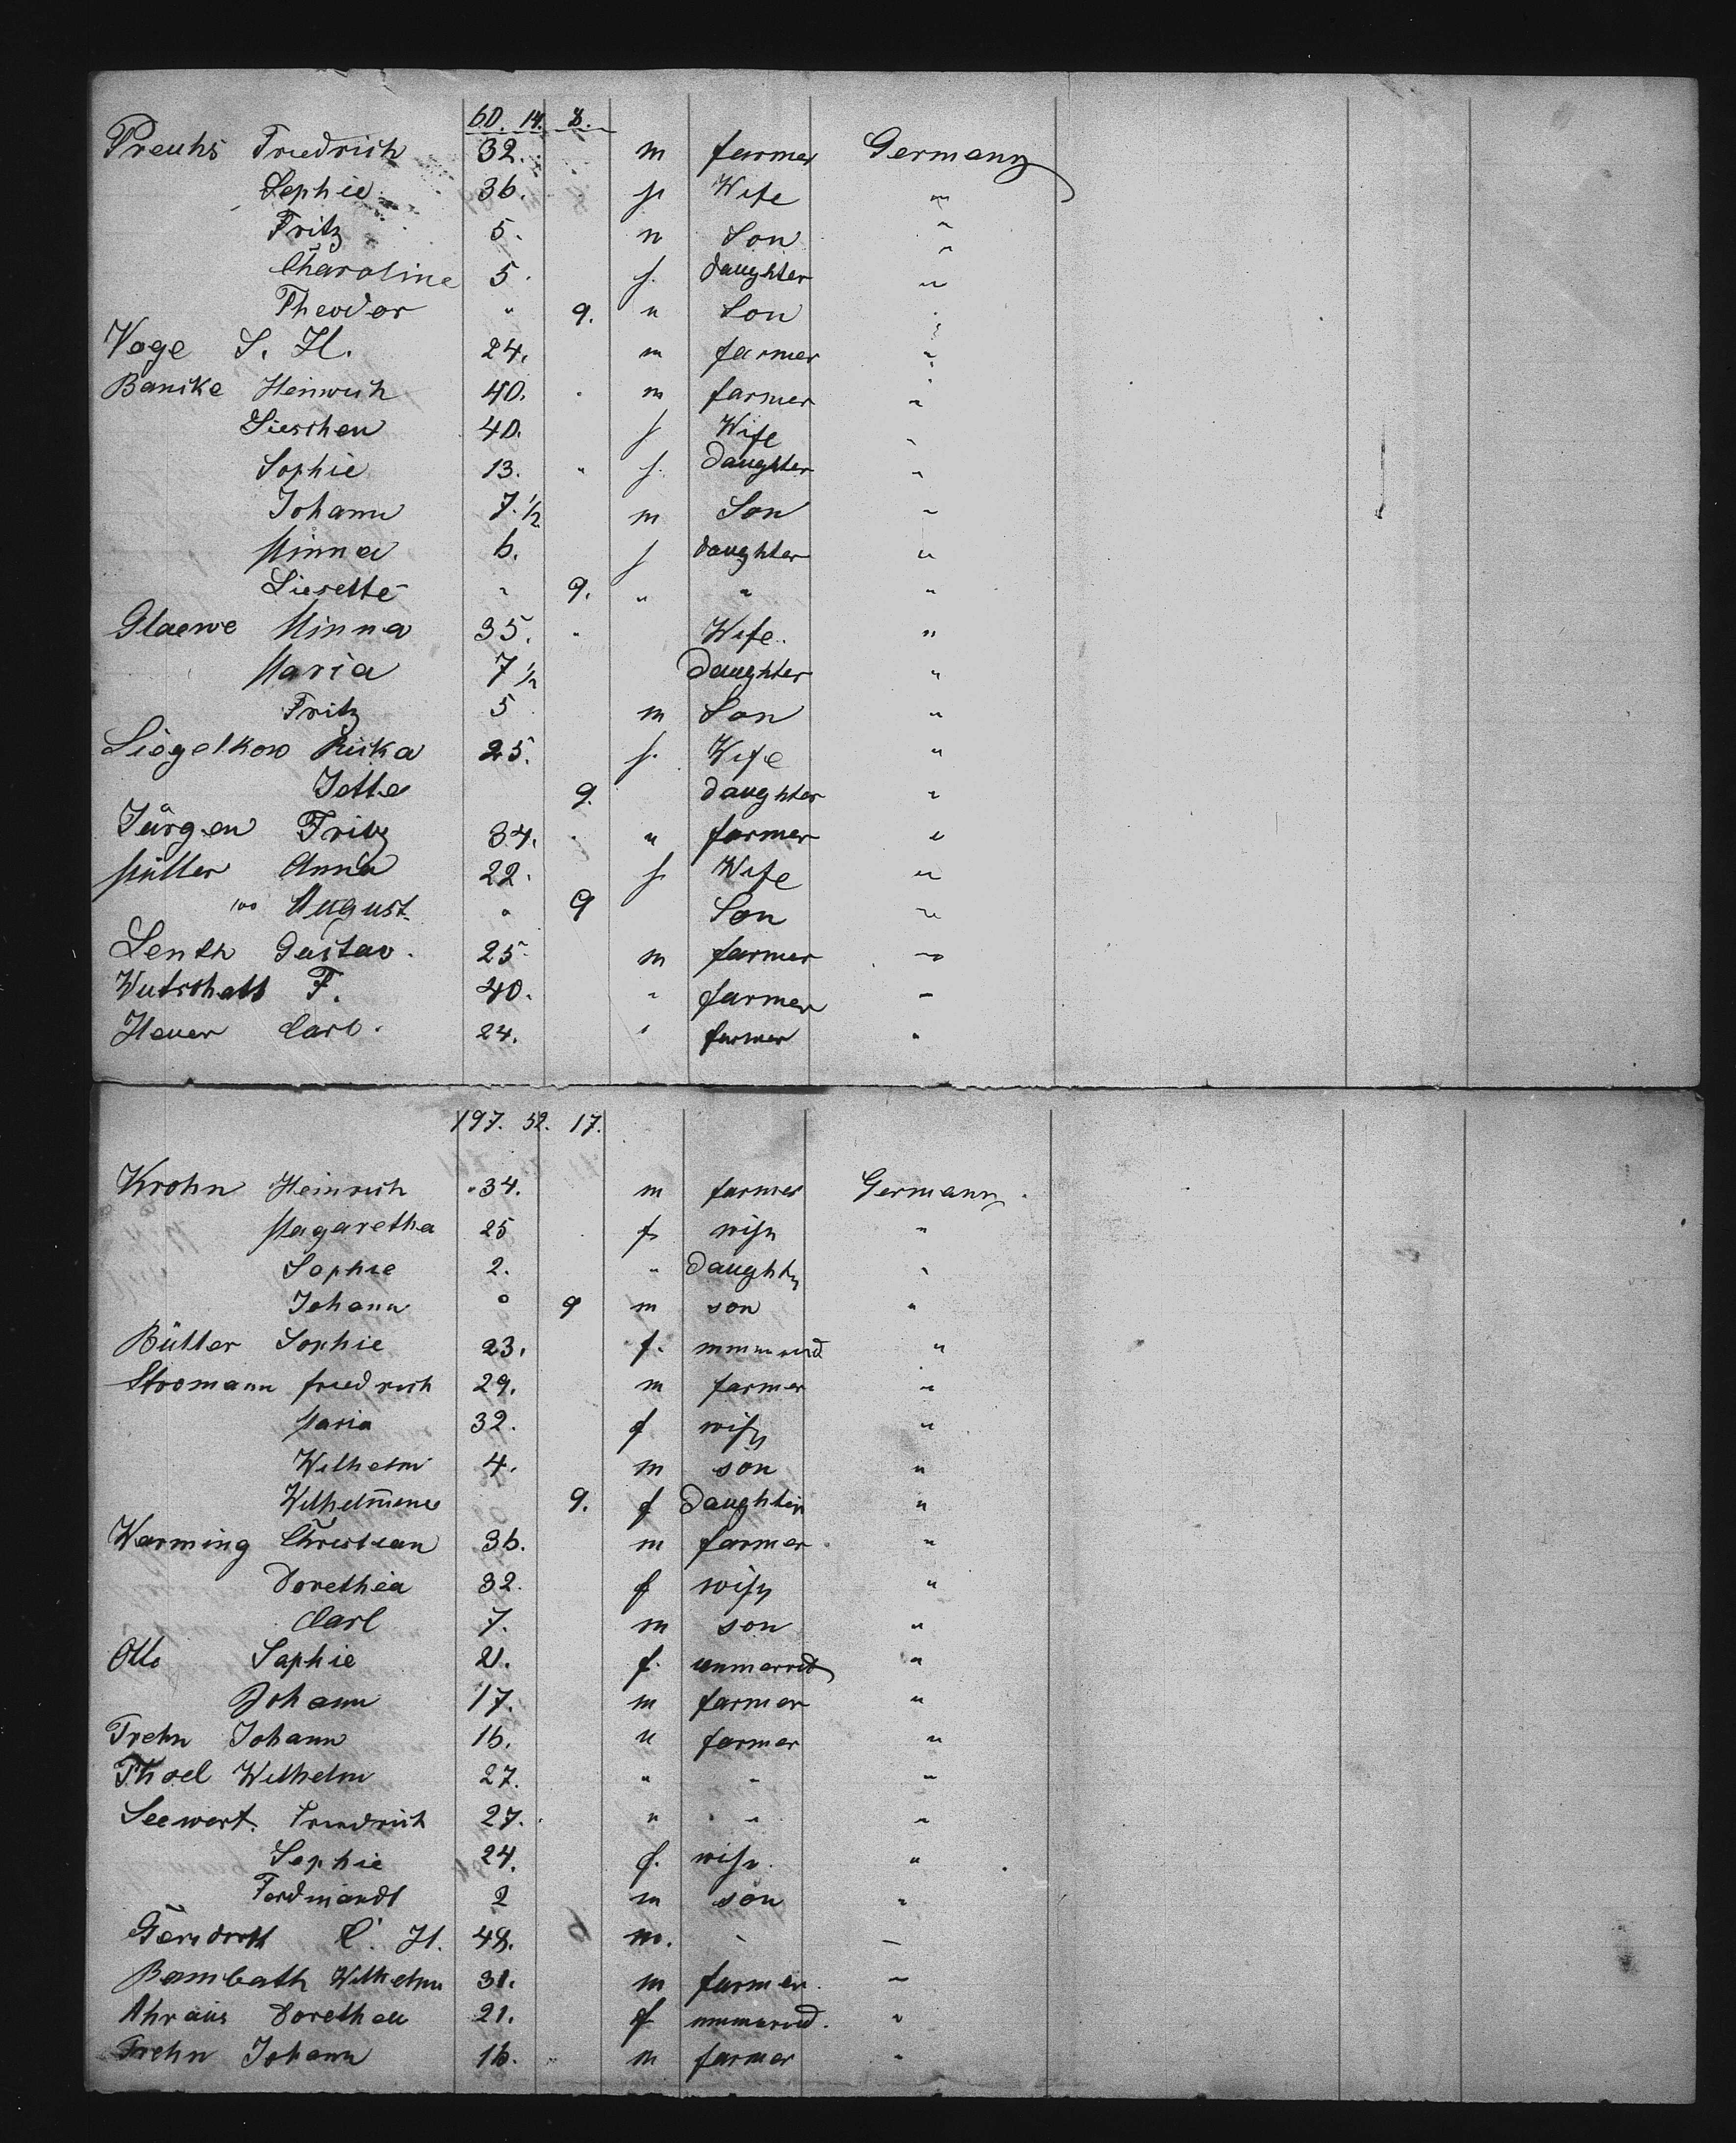 60. 14. 8.
Preuhs Friedrich 32. m farmer Germany
Sophie 36. f. Wife "
Fritz 5. m Son "
Charoline 5. f. daughter "
Theodor " 9. " Son "
Voge S. H. 24. m farmer "
Banike Heinrich 40. m farmer "
Lieschen 40. f Wife "
Sophie 13. " f. daughter "
Johann 7.½ m Son "
Minna 6. f daughter "
Liesette " 9. " " "
Glaewe Minna 35. " Wife. "
Maria 7½ Daughter "
Fritz 5 m Son "
Siegelkow Rieka 25. f. Wife "
Jette 9. daughter "
Jürgen Fritz 34. " farmer "
Müller Anna 22. f. Wife "
" August " 9 Son "
Lenth Gustav. 25. m farmer "
F. 40. " farmer "
Heuer Carl. 24. " farmer "
197. 52. 17.
Krohn Heinrich 34. m farmer Germany
Magaretha 25 f. wife "
Sophie 2. " Daughter "
Johann " 9 m son "
Bütter Sophie 23. f. "
Stromann friedrich 29. m farmer "
Maria 32. f wife "
Wilhelm 4. m son "
Wilhelmine 9. f Daughter "
Warming Christian 36. m farmer "
Dorethea 32. f wife "
Carl 7. m son "
Otto Sophie 21. f. unmarried "
Johann 17. m farmer "
Trehn Johann 16. " farmer "
Thoel Wilhelm 27. " " "
Seewert. Friedrich 27. " " "
Sophie 24. f. wife. "
Ferdinandt 2 m son "
C. H. 48. m. " "
Bambath Wilhelm 31. m farmer. "
Dorethea 21. f unmarried. "
Trehn Johann 16. " m farmer "